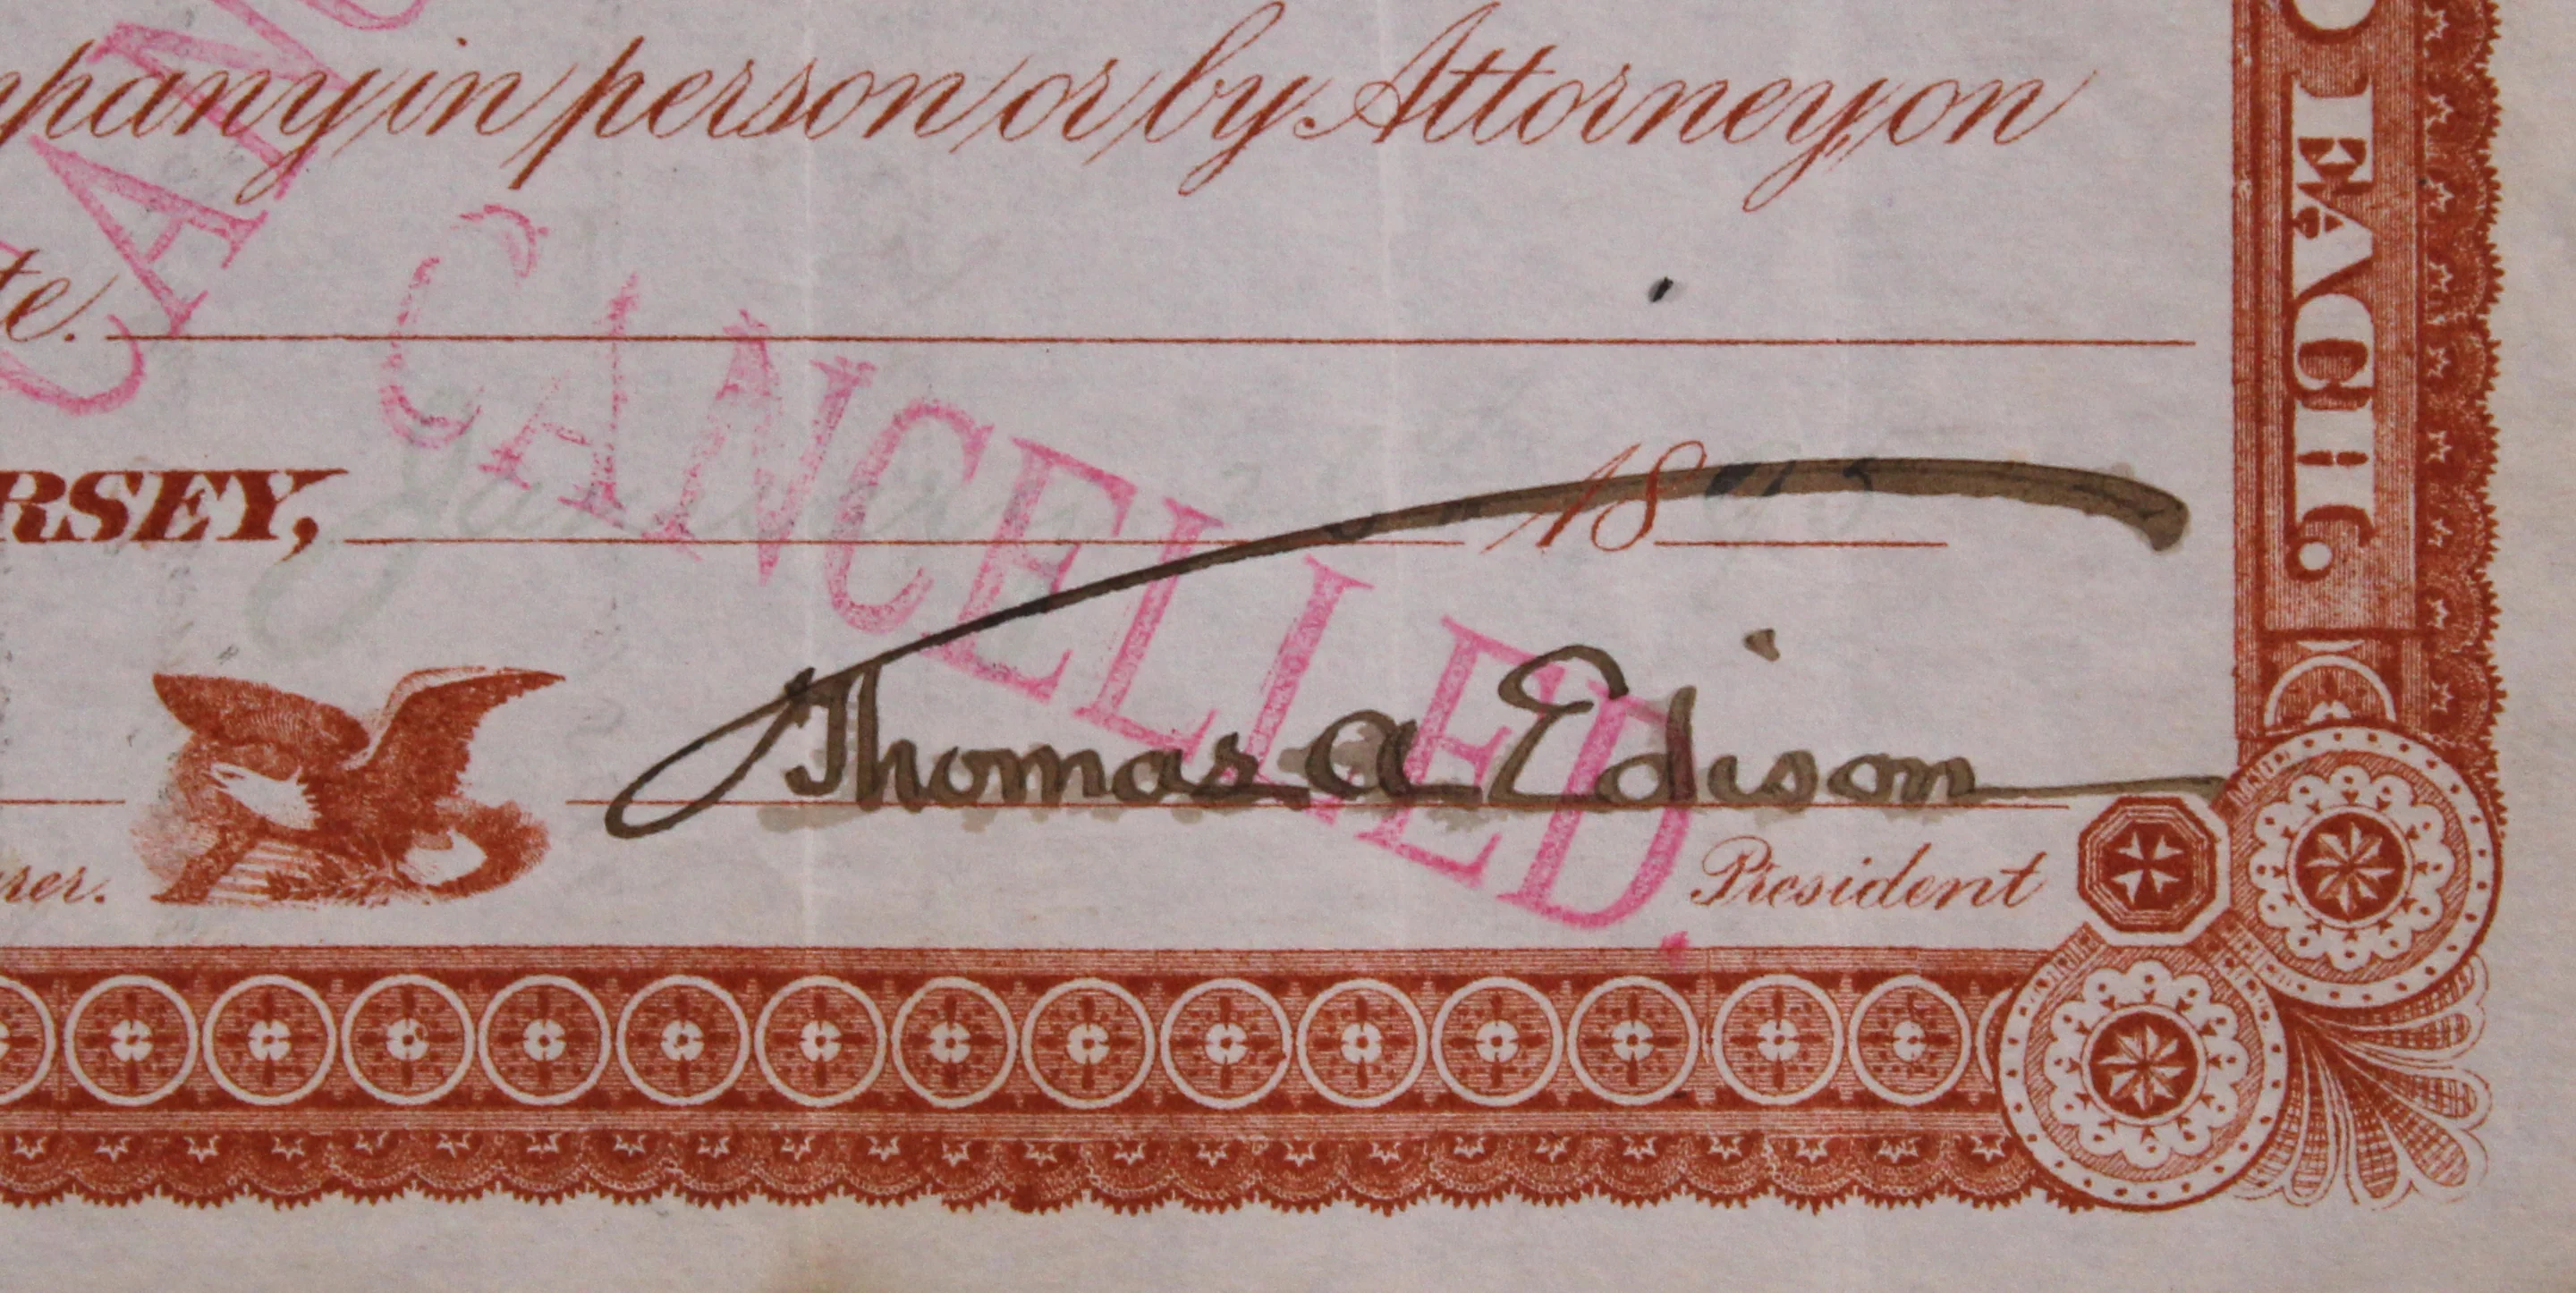 mpany in person or by Attorney, on
te.
CANC
CANCELLED.
RSEY, January 1895
Thomas A Edison
urer.
President
D EACH